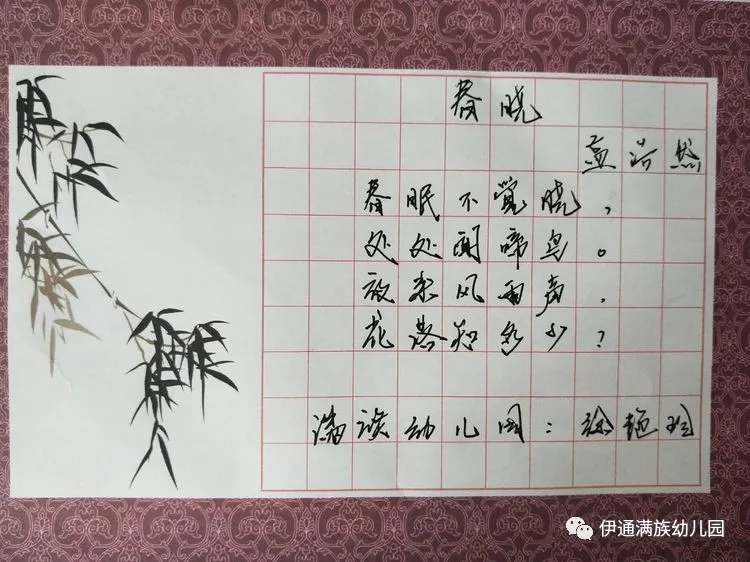 春晓
孟浩然
春眠不觉晓,
处处闻啼鸟。
夜来风雨声,
花落知多少?
满族幼儿园:
伊通满族幼儿园